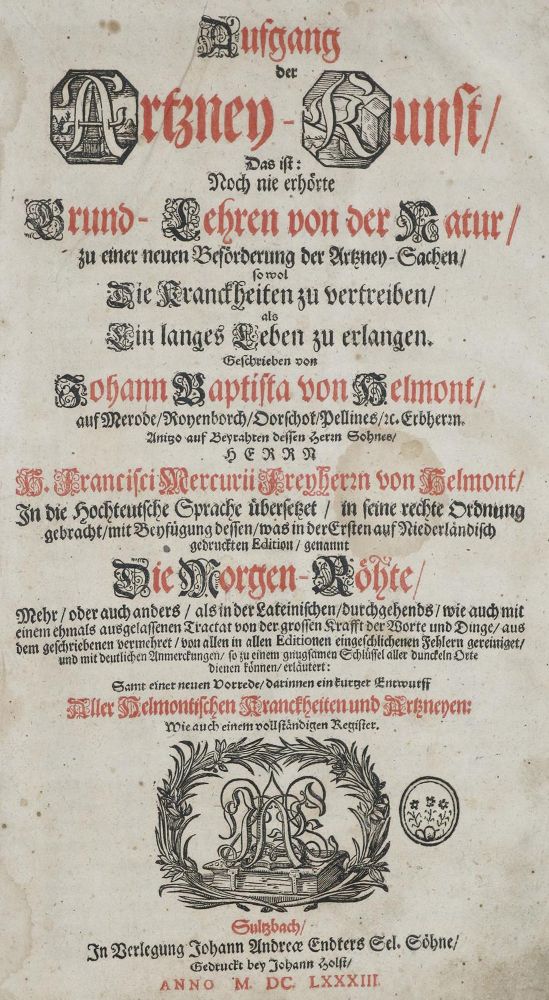 Aufgang
der
Artzney-Kunst/
Das ist:
Noch nie erhörte
Grund-Lehren von der Natur/
zu einer neuen Beförderung der Artzney-Sachen/
so wol
Die Kranckheiten zu vertreiben/
als
Ein langes Leben zu erlangen.
Geschrieben von
Johann Baptista von Helmont/
auf Merode/Royenborch/Oorschot/Pellines/ꝛc. Erbherrn.
Anitzo auf Beyrahten dessen Herrn Sohnes/
HERRN
H. Francisci Mercurii Freyherrn von Helmont/
In die Hochteutsche Sprache übersetzet/ in seine rechte Ordnung
gebracht/mit Beyfügung dessen/was in der Ersten auf Niederländisch
gedruckten Edition/ genannt
Die Morgen-Röhte/
Mehr/ oder auch anders/ als in der Lateinischen/durchgehends/ wie auch mit
einem ehmals ausgelassenen Tractat von der grossen Krafft der Worte und Dinge/ aus
dem geschriebenen vermehret/ von allen in allen Editionen eingeschlichenen Fehlern gereiniget/
und mit deutlichen Anmerckungen/ so zu einem gnugsamen Schlüssel aller dunckeln Orte
dienen können/ erläutert:
Samt einer neuen Vorrede/ darinnen ein kurtzer Entwurff
Aller Helmontischen Kranckheiten und Artzneyen:
Wie auch einem vollständigen Register.
Sultzbach/
In Verlegung Johann Andreæ Endters Sel. Söhne/
Gedruckt bey Johann Holst/
ANNO M. DC. LXXXIII.